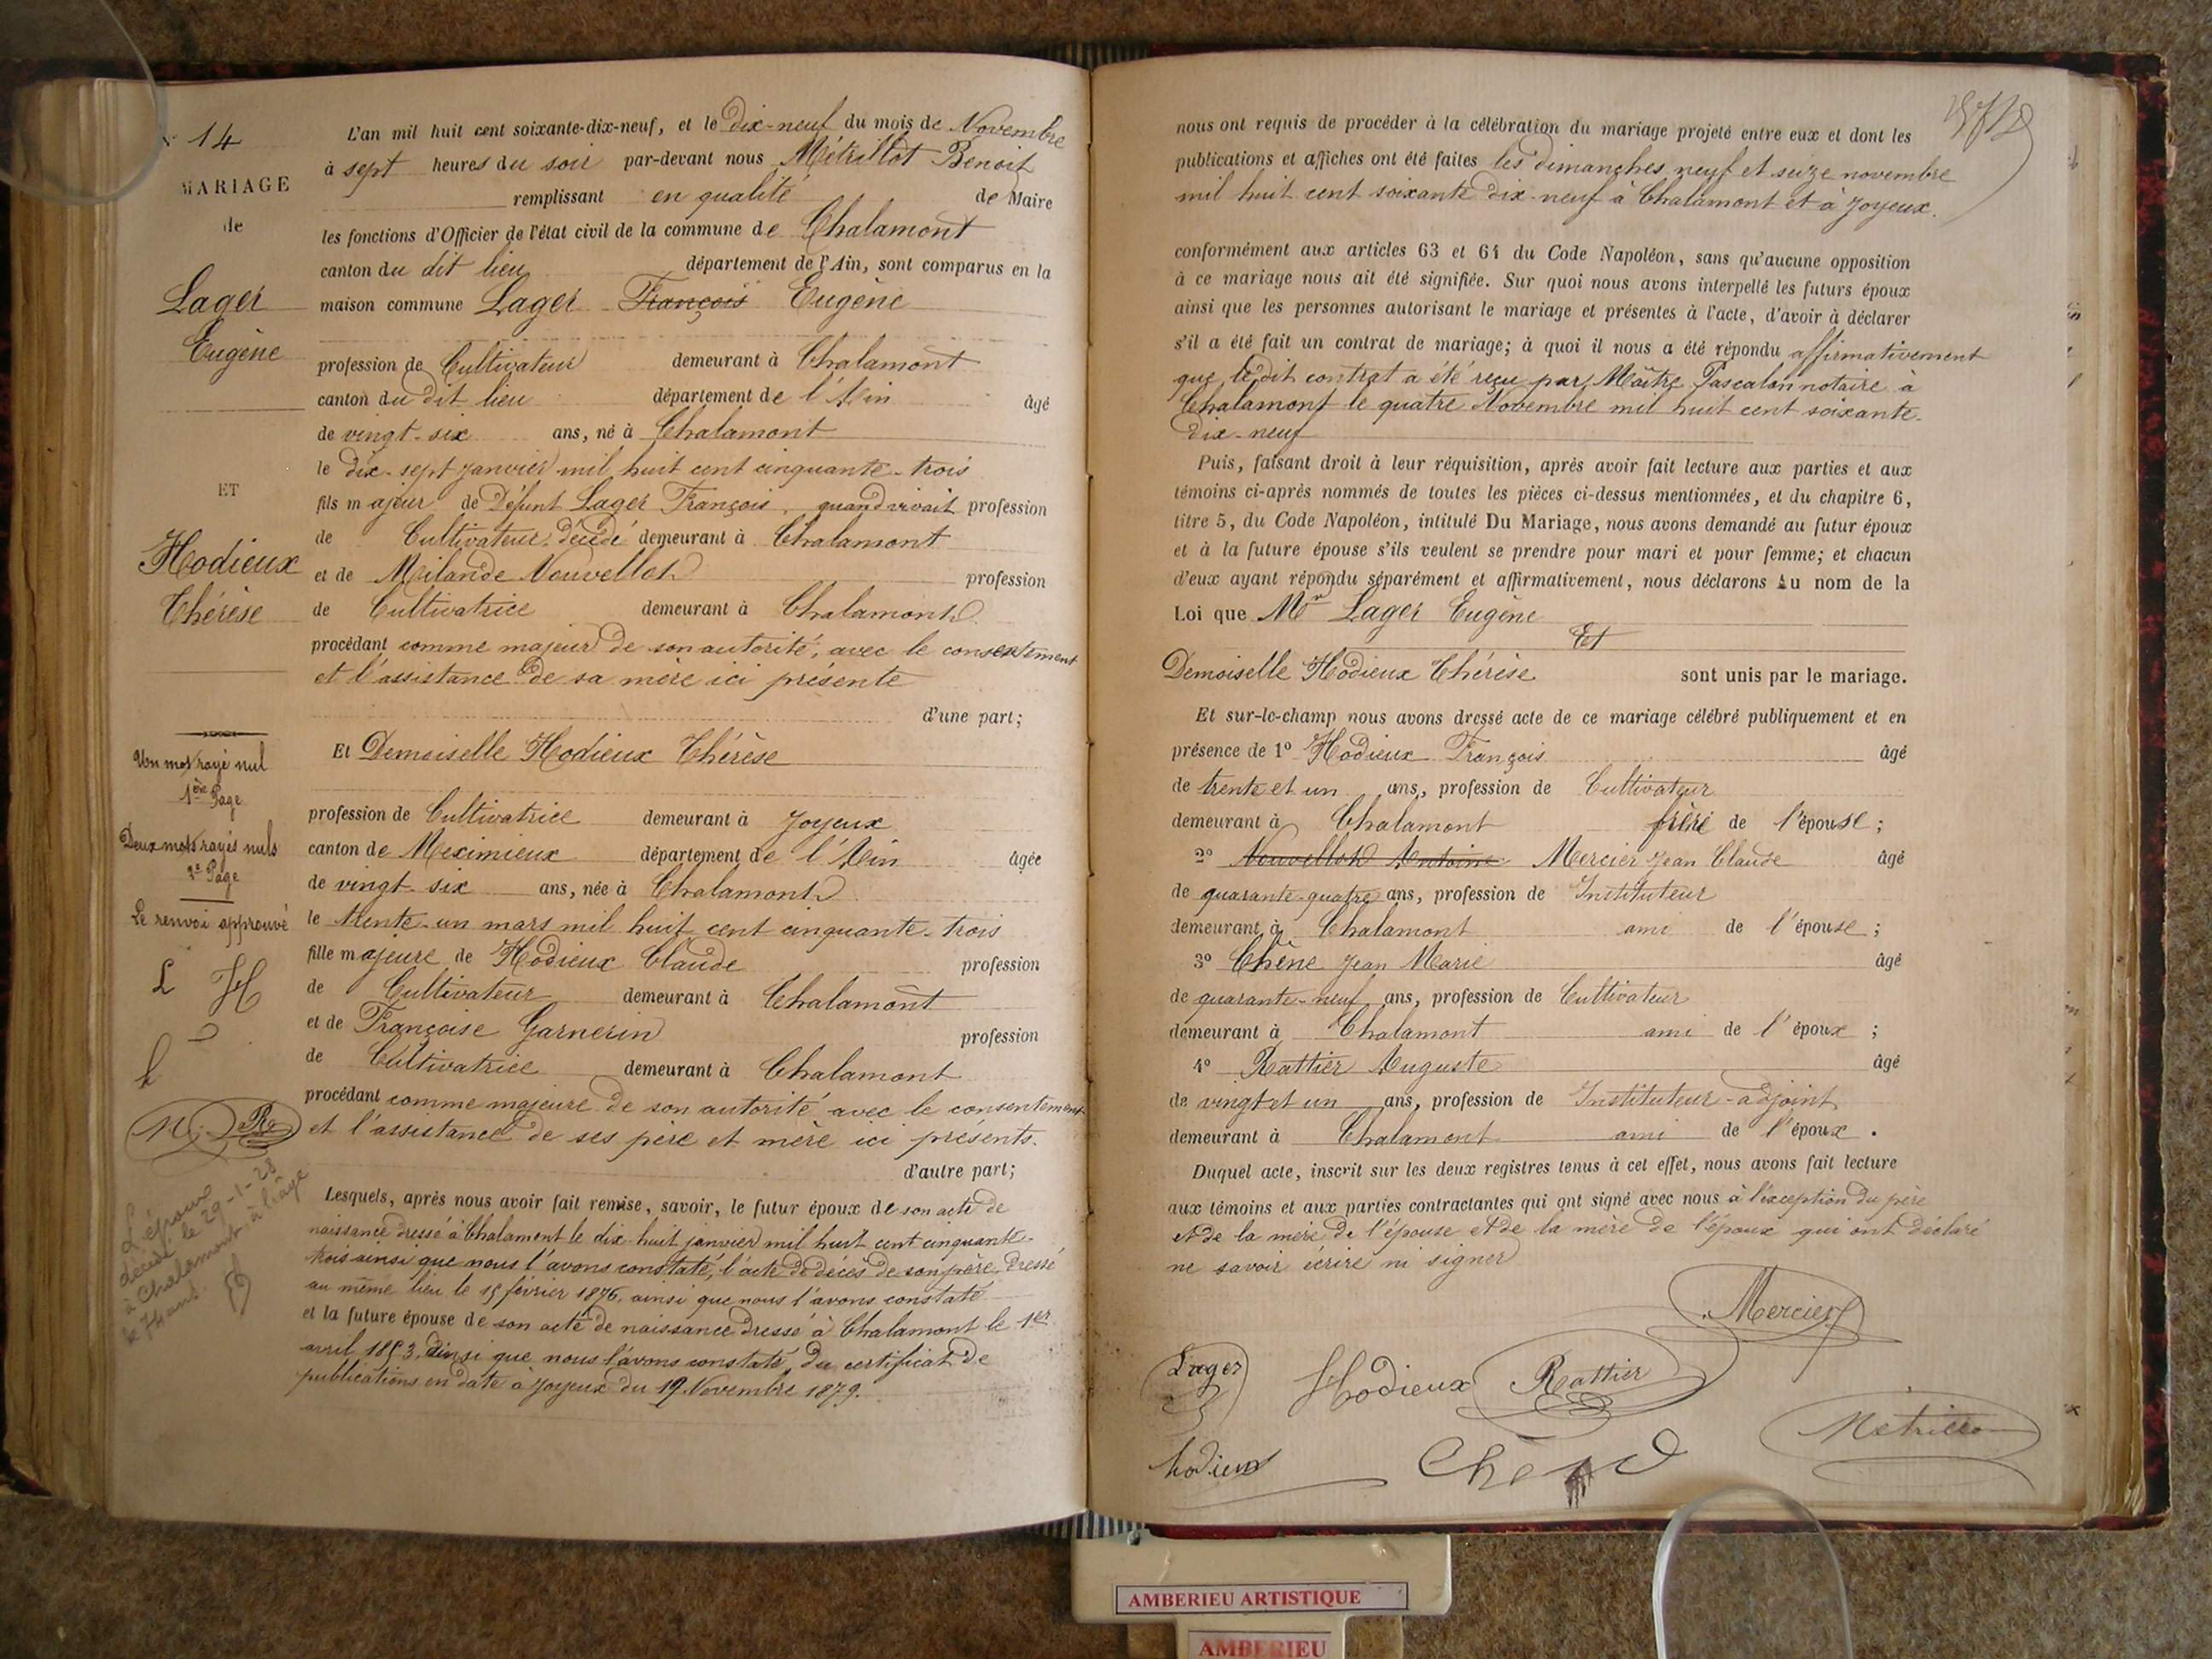 N° 14
MARIAGE
de
Lager
Eugène
ET
Hodieux
Thérèse
Un mot rayé nul
1ère Page
Deux mots rayés nuls
2e Page
Le renvoi approuvé
L H
h
M. Ra
L'époux
décédé le 29-1-28
à Chalamont à l'âge
de 74 ans.
L'an mil huit cent soixante-dix-neuf, et le dix-neuf du mois de Novembre
à sept heures du soir par-devant nous Métrillot Benoit
remplissant en qualité de Maire
les fonctions d'Officier de l'état civil de la commune de Chalamont
canton du dit lieu département de l'Ain, sont comparus en la
maison commune Lager François Eugène
profession de Cultivateur demeurant à Chalamont
canton du dit lieu département de l'Ain âgé
de vingt-six ans, né à Chalamont
le dix-sept janvier mil huit cent cinquante-trois
fils majeur de Défunt Lager François, quand vivait profession
de Cultivateur, décédé demeurant à Chalamont
et de Milande Nouvellot profession
de Cultivatrice demeurant à Chalamont
procédant comme majeur de son autorité, avec le consentement
et l'assistance de sa mère ici présente
d'une part;
Et Demoiselle Hodieux Thérèse
profession de Cultivatrice demeurant à Joyeux
canton de Meximieux département de l'Ain âgée
de vingt-six ans, née à Chalamont
le trente-un mars mil huit cent cinquante-trois
fille majeure de Hodieux Claude profession
de Cultivateur demeurant à Chalamont
et de Françoise Garnerin profession
de Cultivatrice demeurant à Chalamont
procédant comme majeure de son autorité avec le consentement
et l'assistance de ses père et mère ici présents.
d'autre part;
Lesquels, après nous avoir fait remise, savoir, le futur époux de son acte de
naissance dressé à Chalamont le dix-huit janvier mil huit cent cinquante-
trois ainsi que nous l'avons constaté, l'acte de décès de son père dressé
au même lieu le 15 février 1876, ainsi que nous l'avons constaté
et la future épouse de son acte de naissance dressé à Chalamont le 1er
avril 1853, ainsi que nous l'avons constaté, du certificat de
publications en date à Joyeux du 19 Novembre 1879.
nous ont requis de procéder à la célébration du mariage projeté entre eux et dont les
publications et affiches ont été faites les dimanches neuf et seize novembre
mil huit cent soixante dix-neuf à Chalamont et à Joyeux.
conformément aux articles 63 et 64 du Code Napoléon, sans qu'aucune opposition
à ce mariage nous ait été signifiée. Sur quoi nous avons interpellé les futurs époux
ainsi que les personnes autorisant le mariage et présentes à l'acte, d'avoir à déclarer
s'il a été fait un contrat de mariage; à quoi il nous a été répondu affirmativement
que le dit contrat a été reçu par Maître Pascalon notaire à
Chalamont le quatre Novembre mil huit cent soixante-
dix-neuf
Puis, faisant droit à leur réquisition, après avoir fait lecture aux parties et aux
témoins ci-après nommés de toutes les pièces ci-dessus mentionnées, et du chapitre 6,
titre 5, du Code Napoléon, intitulé Du Mariage, nous avons demandé au futur époux
et à la future épouse s'ils veulent se prendre pour mari et pour femme; et chacun
d'eux ayant répondu séparément et affirmativement, nous déclarons Au nom de la
Loi que Mr Lager Eugène
Et
Demoiselle Hodieux Thérèse sont unis par le mariage.
Et sur-le-champ nous avons dressé acte de ce mariage célébré publiquement et en
présence de 1° Hodieux François âgé
de trente et un ans, profession de Cultivateur
demeurant à Chalamont frère de l'épouse;
2° Nouvellot Antoine Mercier Jean Claude âgé
de quarante-quatre ans, profession de Instituteur
demeurant à Chalamont ami de l'épouse;
3° Chêne Jean Marie âgé
de quarante-neuf ans, profession de Cultivateur
demeurant à Chalamont ami de l'époux;
4° Rattier Auguste âgé
de vingt et un ans, profession de Instituteur-adjoint
demeurant à Chalamont ami de l'époux.
Duquel acte, inscrit sur les deux registres tenus à cet effet, nous avons fait lecture
aux témoins et aux parties contractantes qui ont signé avec nous à l'exception du père
et de la mère de l'épouse et de la mère de l'époux qui ont déclaré
ne savoir écrire ni signer
Mercier
Lager Hodieux Rattier
Métrillot
hodieux Chêne
AMBERIEU ARTISTIQUE
AMBERIEU